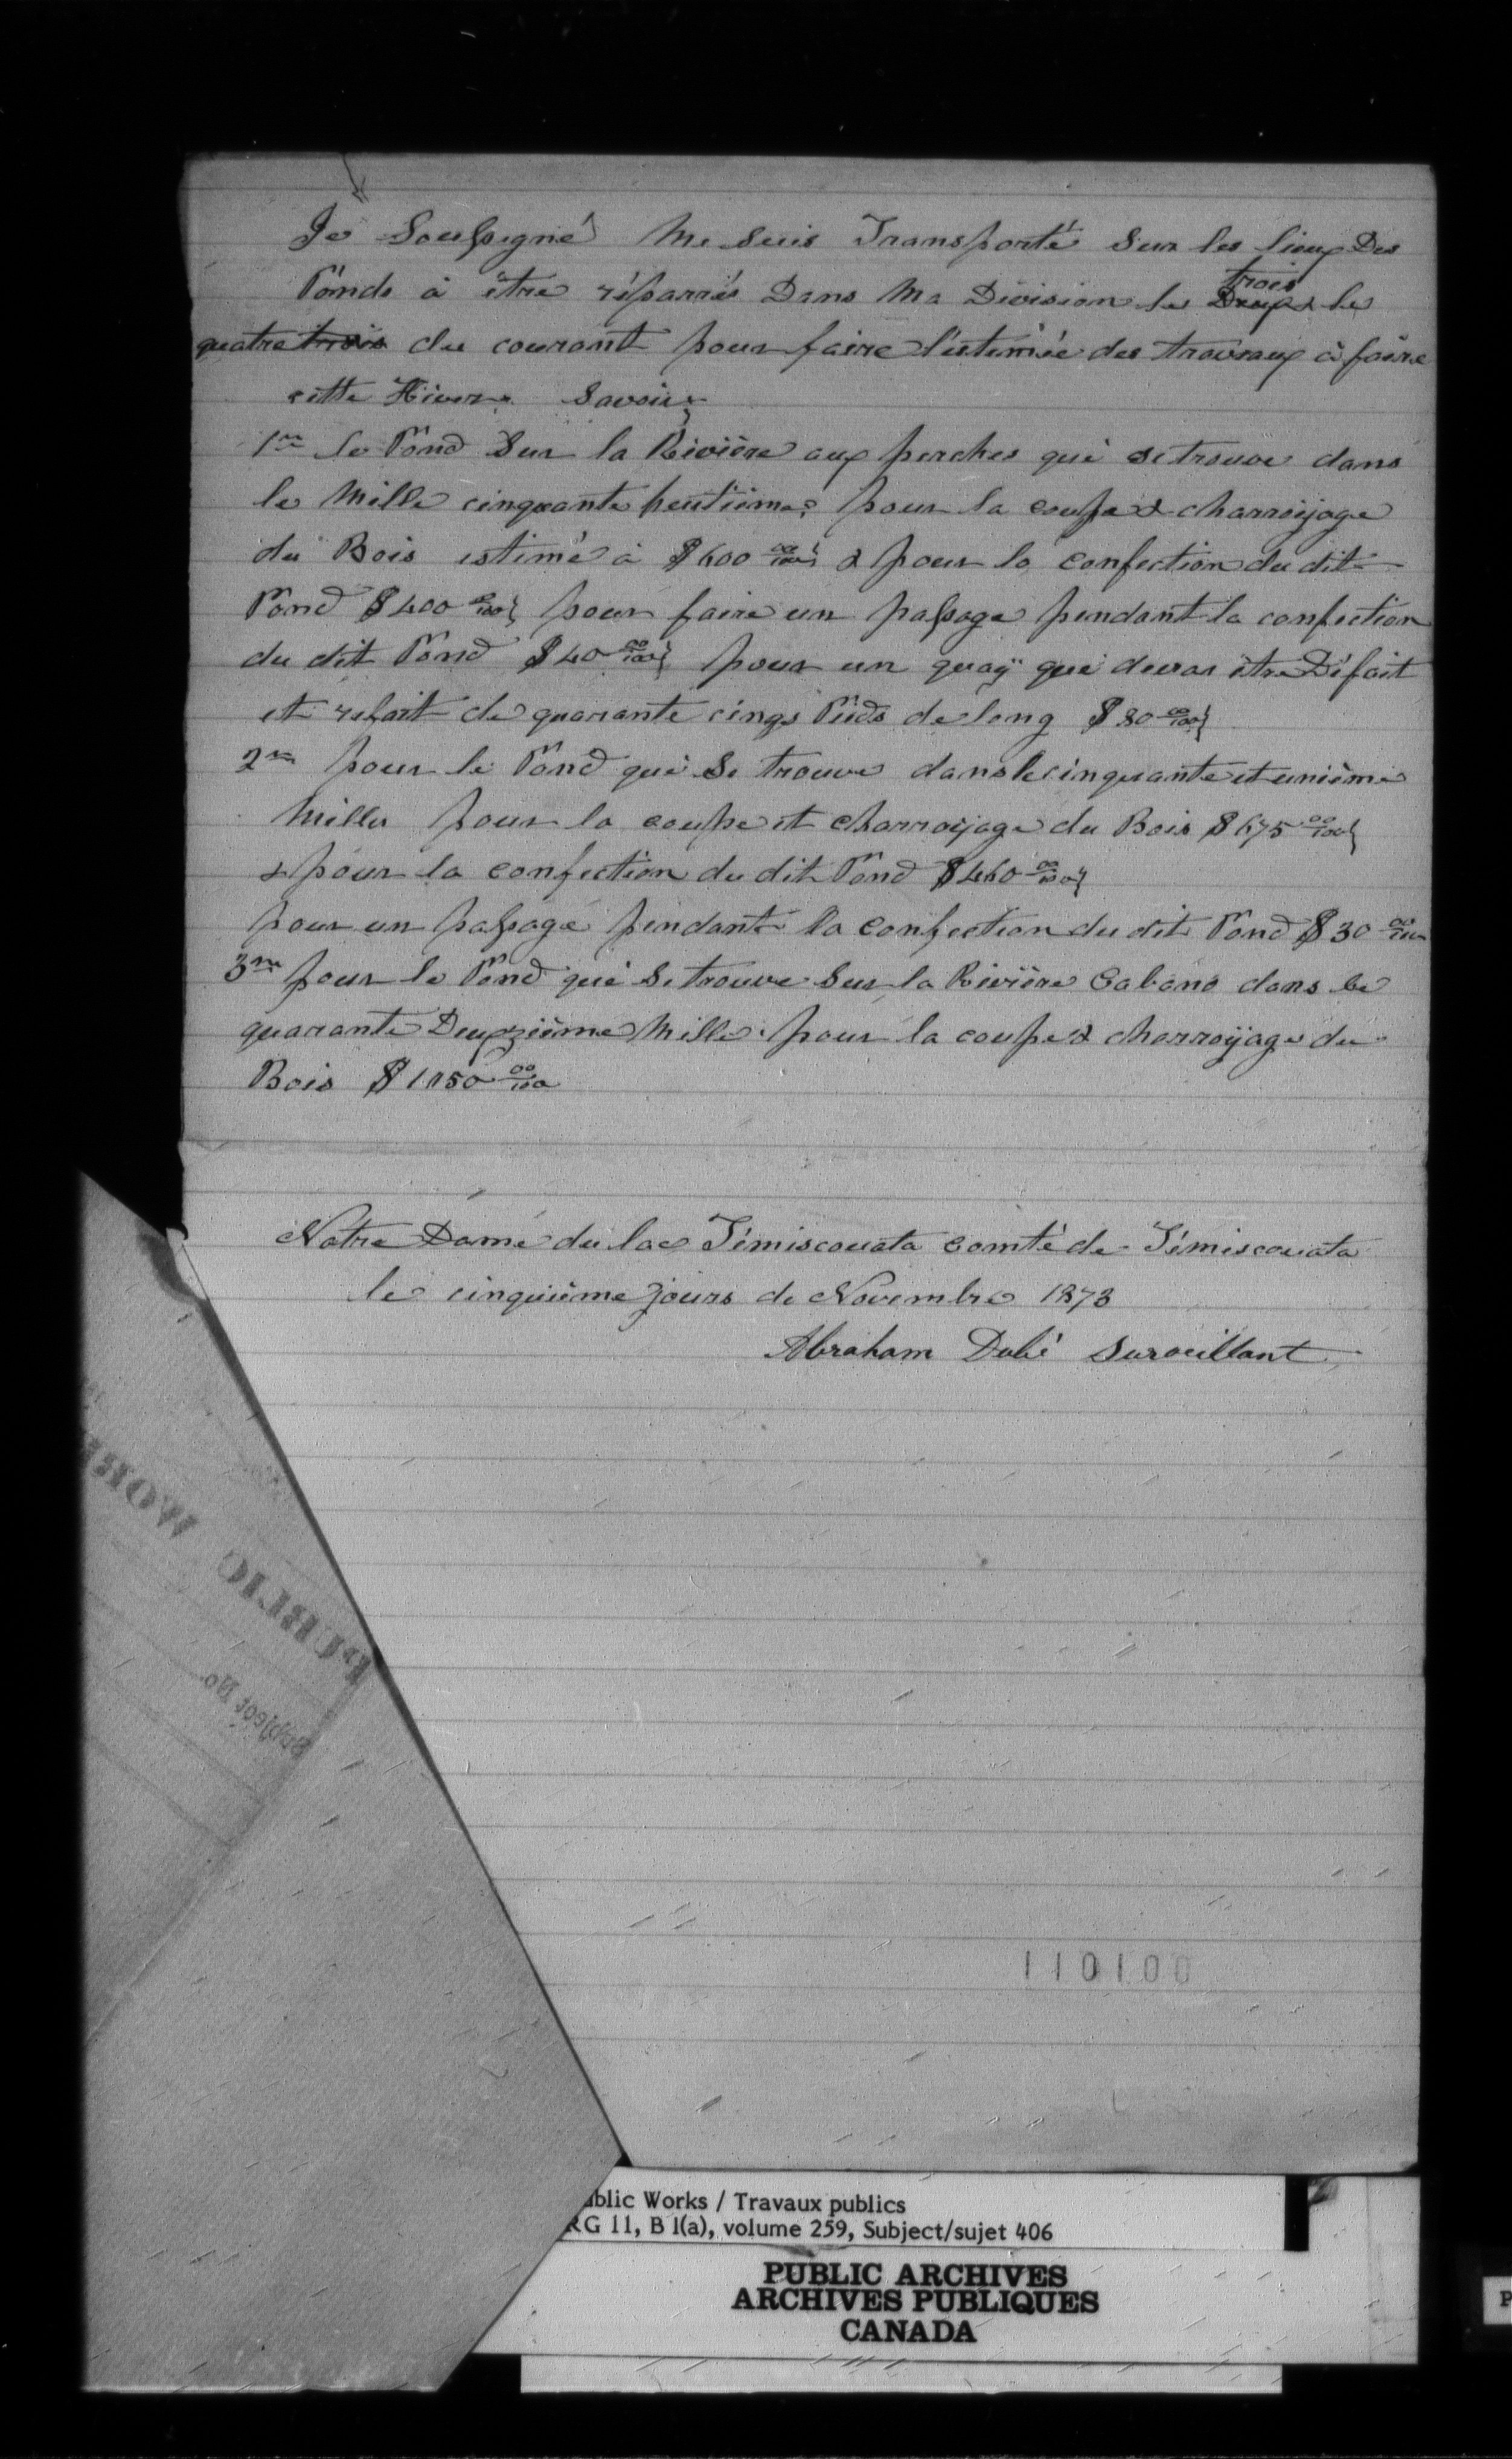 Je Soussigné Me Suis Transporté Sur les lieux Des
Ponds à être réparrés Dans Ma Division le Deux trois & le
quatre trois du courant pour faire l'estimée des travraux à faire
cette Hiver Savoir
1re le Pond Sur la Rivière aux perches qui se trouve dans
le Mille cinquante heutième; pour la coupe & charroijage
du Bois estimé à $600 00/100 & pour la confection du dit
Pond $400 00/100 pour faire un passage pendant la confection
du dit Pond $40 00/100 pour un quaÿ qui devras être Défait
et refait de quarante cinqs Pieds de long $80 00/100
2me pour le Pond qui Se trouve dans le cinquante et unième
Milles pour la coupe et charroijage du Bois $675 00/100
& pour la confection du dit Pond $460 00/100
pour un passage pendant la confection du dit Pond $30 00/100
3me pour le Pond qui Se trouve Sur la Rivière Cabano dans le
quarante Deuxzième Mille pour la coupe & charroijage du
Bois $1050 00/100
Notre Dame du lac Témiscouata Comté de Témiscouata
le cinquième jours de Novembre 1873
Abraham Dubé Surveillant
PUBLIC WOR
Subject No.
110100
ublic Works / Travaux publics
RG 11, B 1(a), volume 259, Subject/sujet 406
PUBLIC ARCHIVES
ARCHIVES PUBLIQUES
CANADA
P